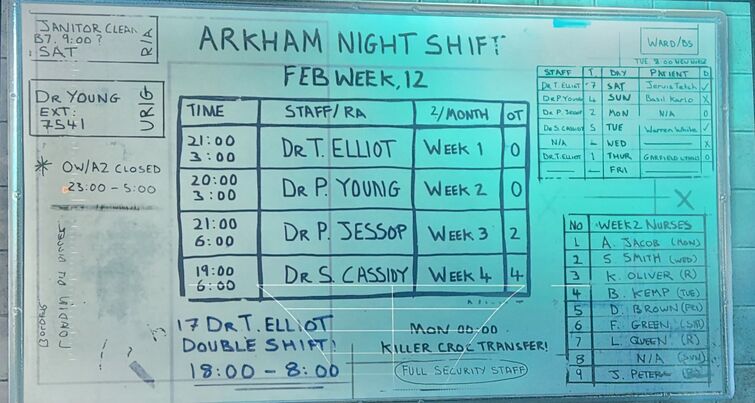 JANITOR CLEAN
B7. 9:00?
SAT
R/A
DR YOUNG
EXT:
7541
URIG
* OW/A2 CLOSED
23:00 - 5:00
ARKHAM NIGHT SHIFT
FEB WEEK, 12
TIME STAFF/RA 2/MONTH OT
21:00 3:00 DR T. ELLIOT WEEK 1 0
20:00 3:00 DR P. YOUNG WEEK 2 0
21:00 6:00 DR P. JESSOP WEEK 3 2
19:00 6:00 DR S. CASSIDY WEEK 4 4
17 DR T. ELLIOT
DOUBLE SHIFT!
18:00 - 8:00
MON 00:00
KILLER CROC TRANSFER!
FULL SECURITY STAFF
WARD/DS
TUE. 8:00 NEW NURSE
STAFF T. DAY PATIENT D
DR T. ELLIOT 7 SAT Jervis Tetch ✓
DR P YOUNG 4 SUN Basil Karlo X
DR P. JESSOP 2 MON N/A 0
DR S. CASSIDY 5 TUE Warren White ✓
N/A - WED X
DR T. ELLIOT 1 THUR GARFIELD LYNNS 0
FRI
X
NO WEEK 2 NURSES
1 A. JACOB (MON)
2 S SMITH (WED)
3 K. OLIVER (R)
4 B. KEMP (TUE)
5 D. BROWN (FRI)
6 F. GREEN (SAT)
7 L. QUEEN (R)
8 N/A (SUN)
9 J. PETERS